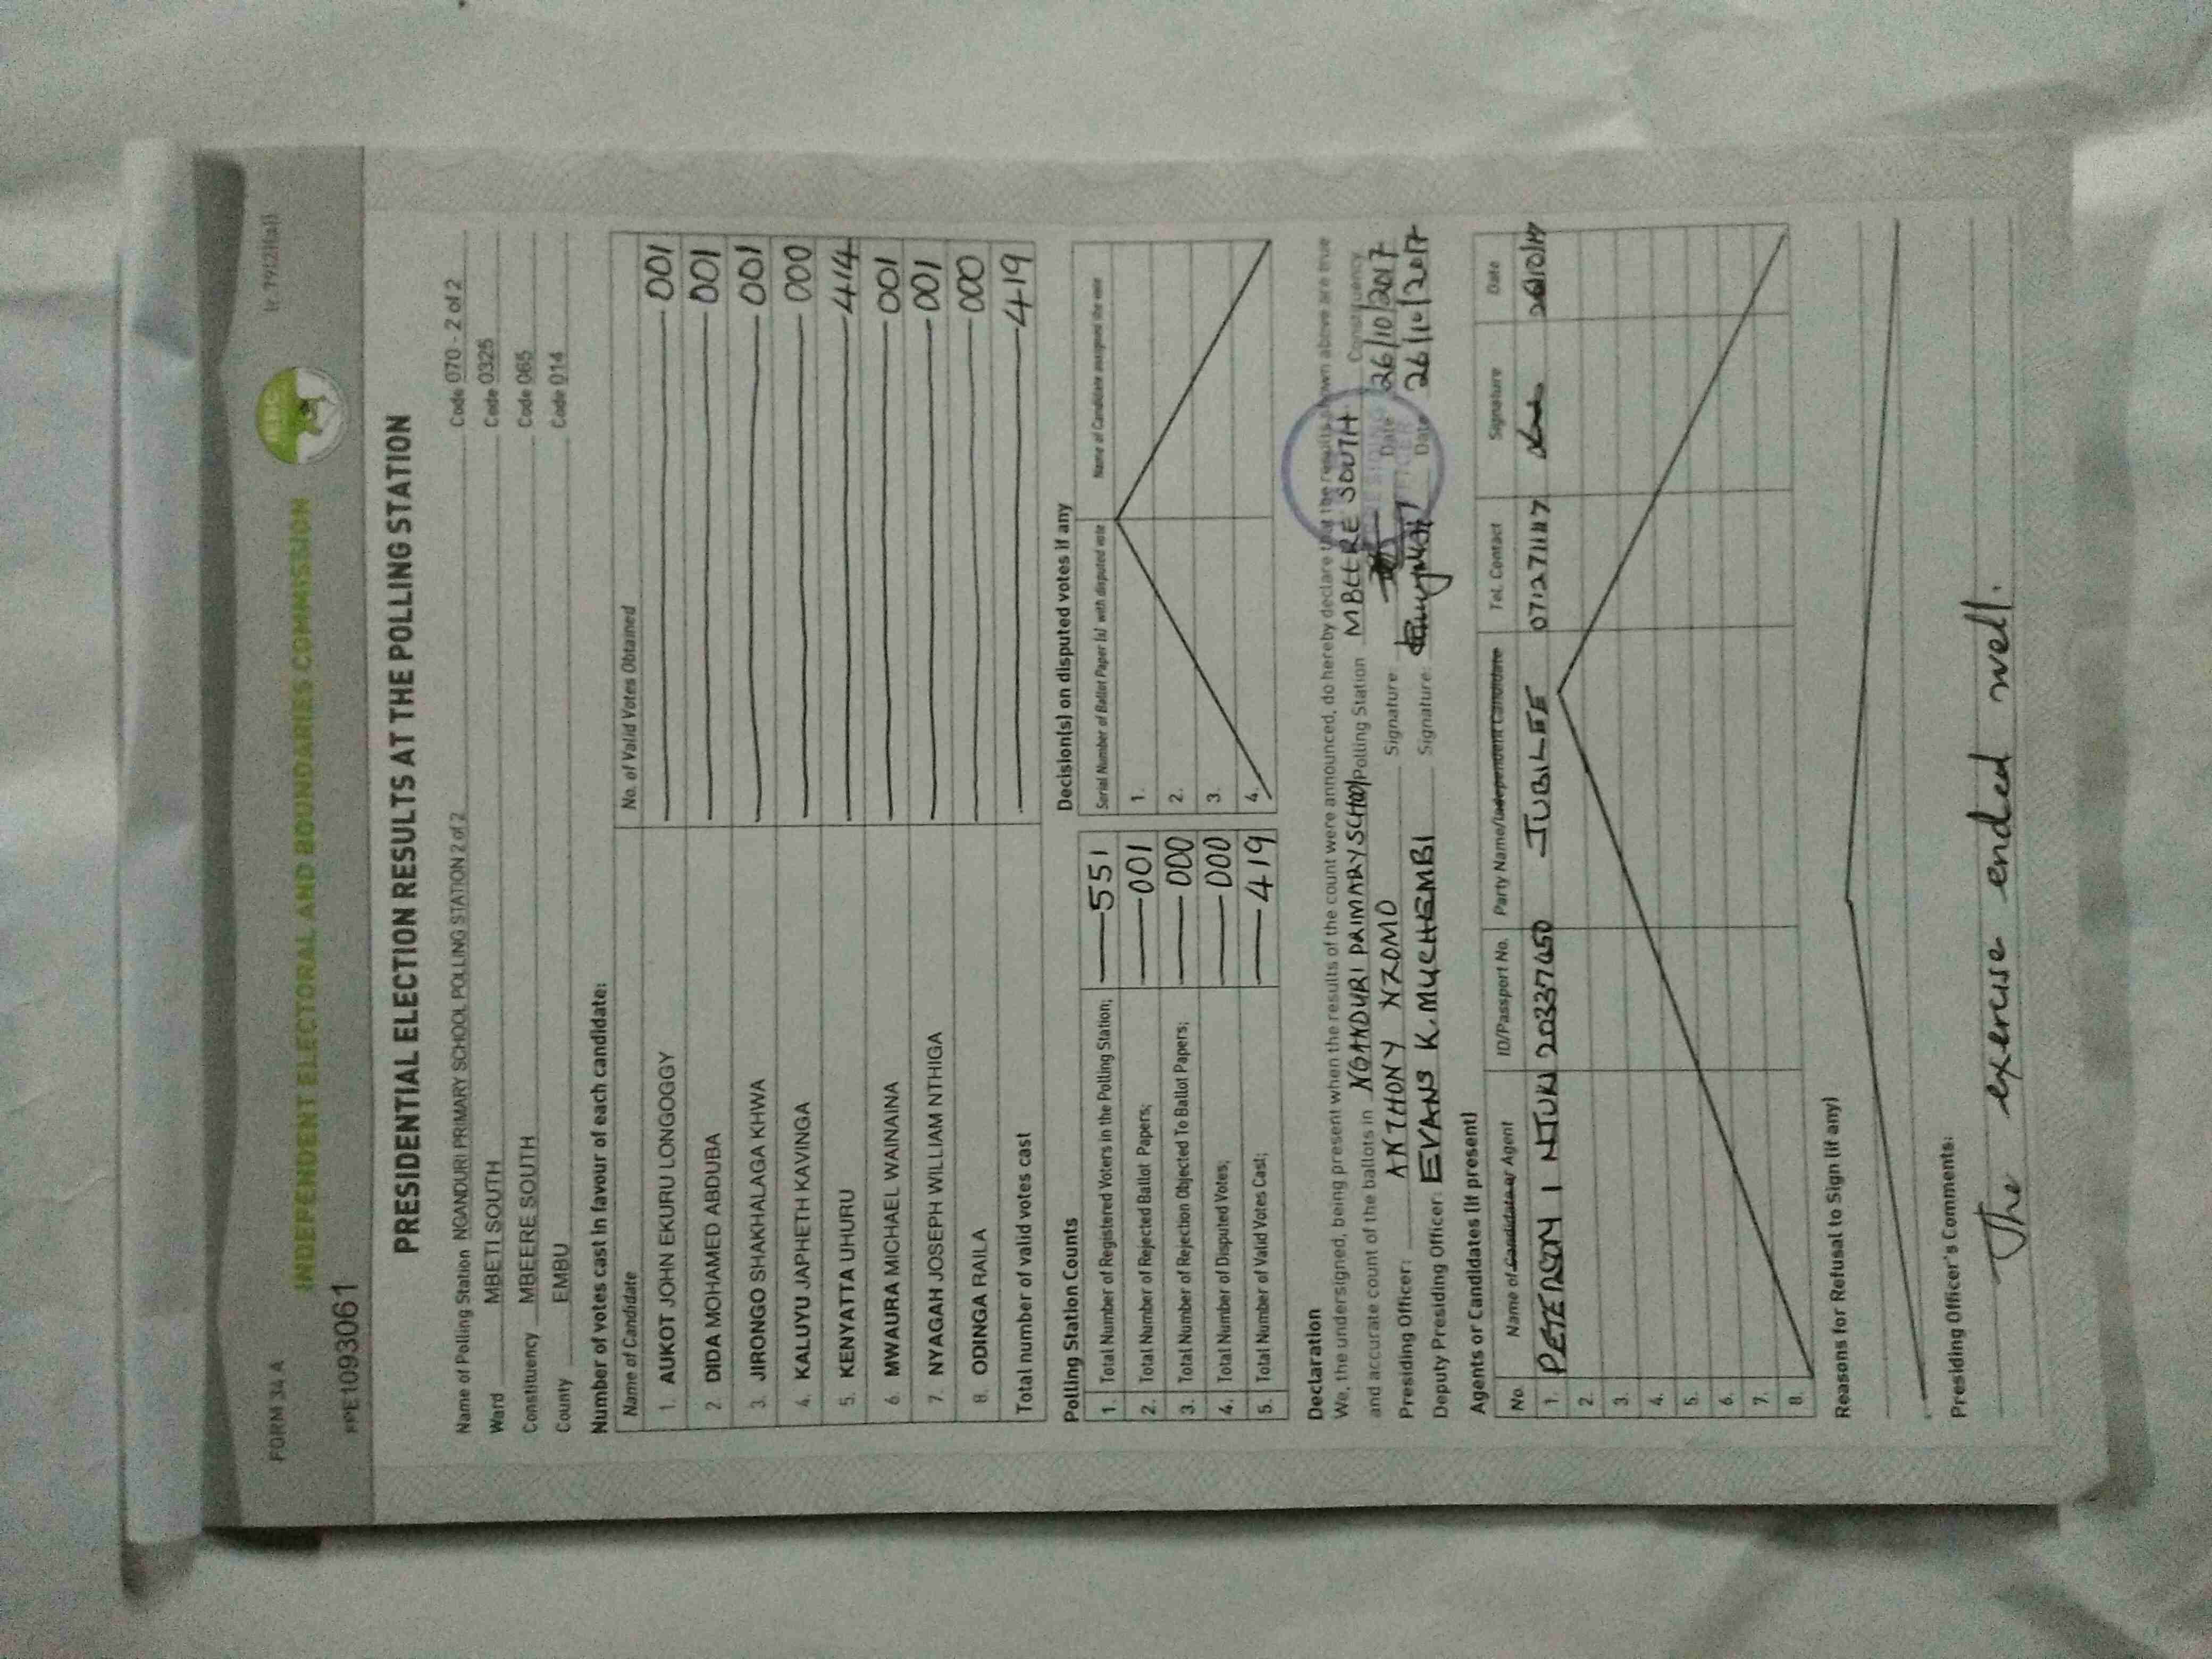 FORM 34 A
(r. 79(2)(a))
INDEPENDENT ELECTORAL AND BOUNDARIES COMMISSION
IEBC
PPE1093061
PRESIDENTIAL ELECTION RESULTS AT THE POLLING STATION
Name of Polling Station NGANDURI PRIMARY SCHOOL POLLING STATION 2 of 2 Code 070 - 2 of 2
Ward MBETI SOUTH Code 0325
Constituency MBEERE SOUTH Code 065
County EMBU Code 014
Number of votes cast in favour of each candidate:
Name of Candidate No. of Valid Votes Obtained
1. AUKOT JOHN EKURU LONGOGGY 001
2. DIDA MOHAMED ABDUBA 001
3. JIRONGO SHAKHALAGA KHWA 001
4. KALUYU JAPHETH KAVINGA 000
5. KENYATTA UHURU 414
6. MWAURA MICHAEL WAINAINA 001
7. NYAGAH JOSEPH WILLIAM NTHIGA 001
8. ODINGA RAILA 000
Total number of valid votes cast 419
Polling Station Counts
1. Total Number of Registered Voters in the Polling Station; 551
2. Total Number of Rejected Ballot Papers; 001
3. Total Number of Rejection Objected To Ballot Papers; 000
4. Total Number of Disputed Votes; 000
5. Total Number of Valid Votes Cast; 419
Decision(s) on disputed votes if any
Serial Number of Ballot Paper (s) with disputed vote Name of Candidate assigned the vote
1.
2.
3.
4.
Declaration
We, the undersigned, being present when the results of the count were announced, do hereby declare that the results shown above are true
and accurate count of the ballots in NGANDURI PRIMARY SCHOOL Polling Station MBEERE SOUTH Constituency
Presiding Officer: ANTHONY NZOMO Signature: Date 26/10/2017
Deputy Presiding Officer: EVANS K. MUCHEMBI Signature: Date 26/10/2017
Agents or Candidates (if present)
No. Name of Candidate or Agent ID/Passport No. Party Name/Independent Candidate Tel. Contact Signature Date
1. PETERSON I NJUKI 20337650 JUBILEE 26/10/17
2.
3.
4.
5.
6.
7.
8.
Reasons for Refusal to Sign (if any)
Presiding Officer's Comments:
The exercise ended well.